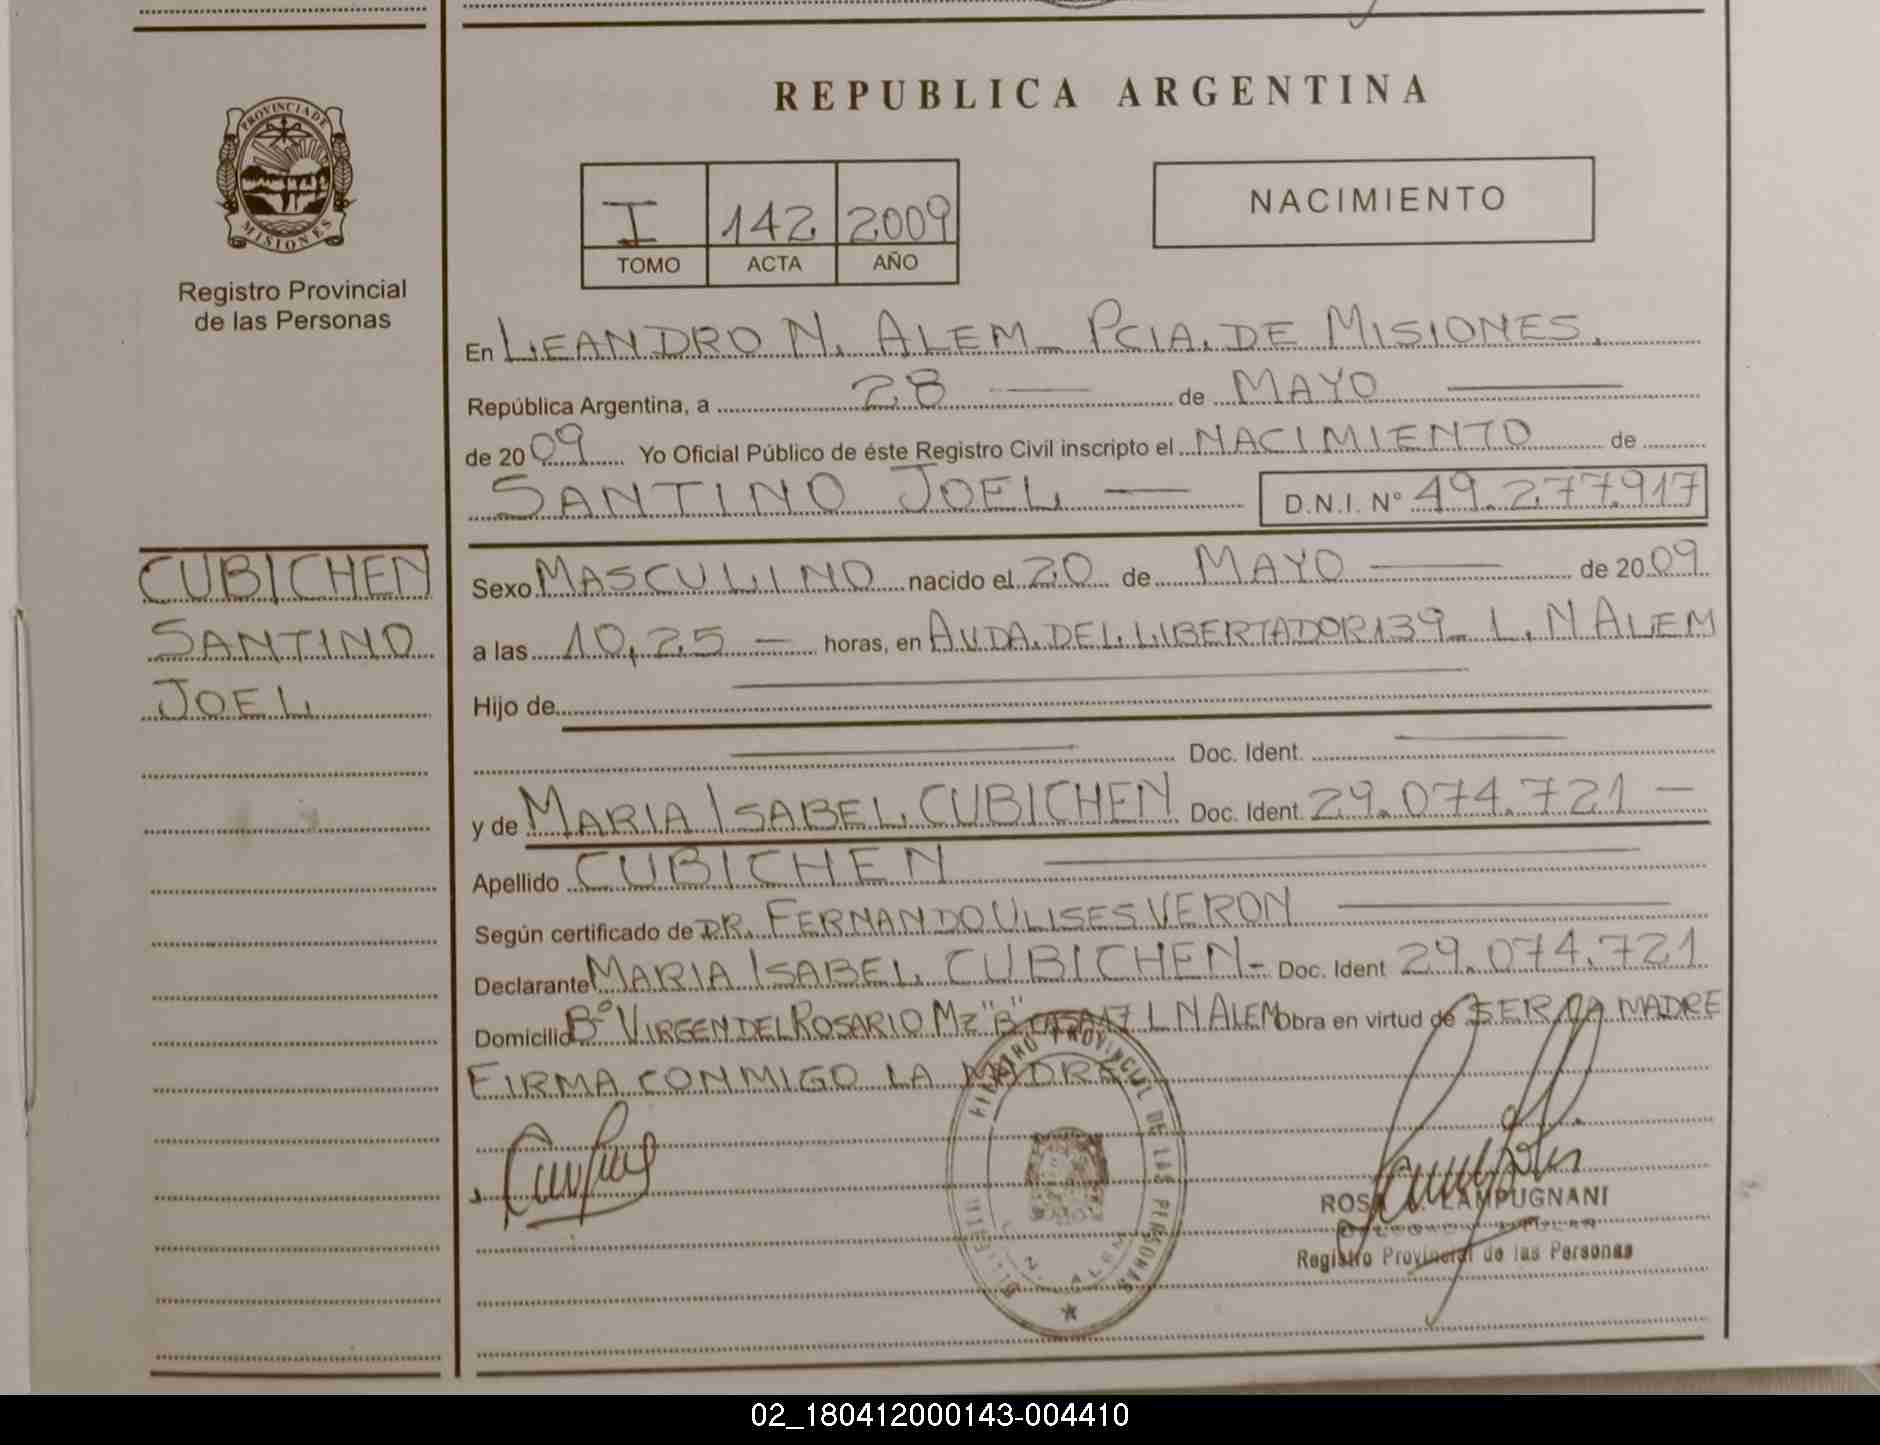 PROVINCIA DE
MISIONES
Registro Provincial
de las Personas
CUBICHEN
SANTINO
JOEL
REPUBLICA ARGENTINA
I 142 2009
TOMO ACTA AÑO
NACIMIENTO
En LEANDRO N. ALEM - PCIA. DE MISIONES.
República Argentina, a 28 — de MAYO —
de 2009 Yo Oficial Público de éste Registro Civil inscripto el NACIMIENTO de
SANTINO JOEL — D.N.I. Nº 49.277.917
Sexo MASCULINO nacido el 20 de MAYO — de 2009
a las 10,25 — horas, en AVDA. DEL LIBERTADOR 139 - L. N ALEM
Hijo de —
— Doc. Ident. —
y de MARIA ISABEL CUBICHEN Doc. Ident. 29.074.721 —
Apellido CUBICHEN —
Según certificado de DR. FERNANDO ULISES VERON —
Declarante MARIA ISABEL CUBICHEN - Doc. Ident 29.074.721
Domicilio Bº VIRGEN DEL ROSARIO Mz "B" CASA 17 L N ALEM Obra en virtud de SER LA MADRE
FIRMA CONMIGO LA MADRE
REGISTRO PROVINCIAL DE LAS PERSONAS
MISIONES
L. N. ALEM
ROSA LAMPUGNANI
Registro Provincial de las Personas
02_180412000143-004410